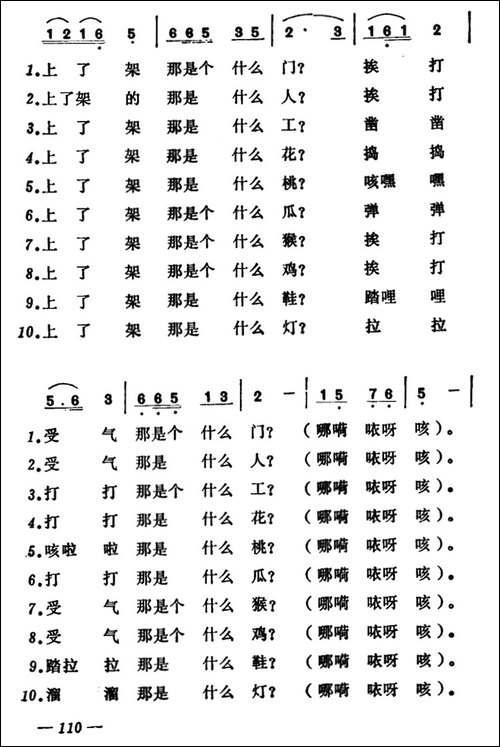 1 2 1 6 5 | 6 6 5 3 5 | 2 · 3 | 1 6 1 2
1.上 了 架 那是个 什么 门? 挨 打
2.上了架 的 那是 什么 人? 挨 打
3.上 了 架 那是 什么 工? 凿 凿
4.上 了 架 那是 什么 花? 捣 捣
5.上 了 架 那是 什么 桃? 咳嘿 嘿
6.上 了 架 那是个 什么 瓜? 弹 弹
7.上 了 架 那是个 什么 猴? 挨 打
8.上 了 架 那是个 什么 鸡? 挨 打
9.上 了 架 那是 什么 鞋? 踏哩 哩
10.上 了 架 那是 什么 灯? 拉 拉
5.6 3 | 6 6 5 1 3 | 2 - | 1 5 7 6 | 5 - |
1.受 气 那是个 什么 门? (哪嗬 咴呀 咳)。
2.受 气 那是 什么 人? (哪嗬 咴呀 咳)。
3.打 打 那是个 什么 工? (哪嗬 咴呀 咳)。
4.打 打 那是 什么 花? (哪嗬 咴呀 咳)。
5.咳啦 啦 那是 什么 桃? (哪嗬 咴呀 咳)。
6.打 打 那是 什么 瓜? (哪嗬 咴呀 咳)。
7.受 气 那是个 什么 猴? (哪嗬 咴呀 咳)。
8.受 气 那是个 什么 鸡? (哪嗬 咴呀 咳)。
9.踏拉 拉 那是 什么 鞋? (哪嗬 咴呀 咳)。
10.溜 溜 那是 什么 灯? (哪嗬 咴呀 咳)。
— 110 —